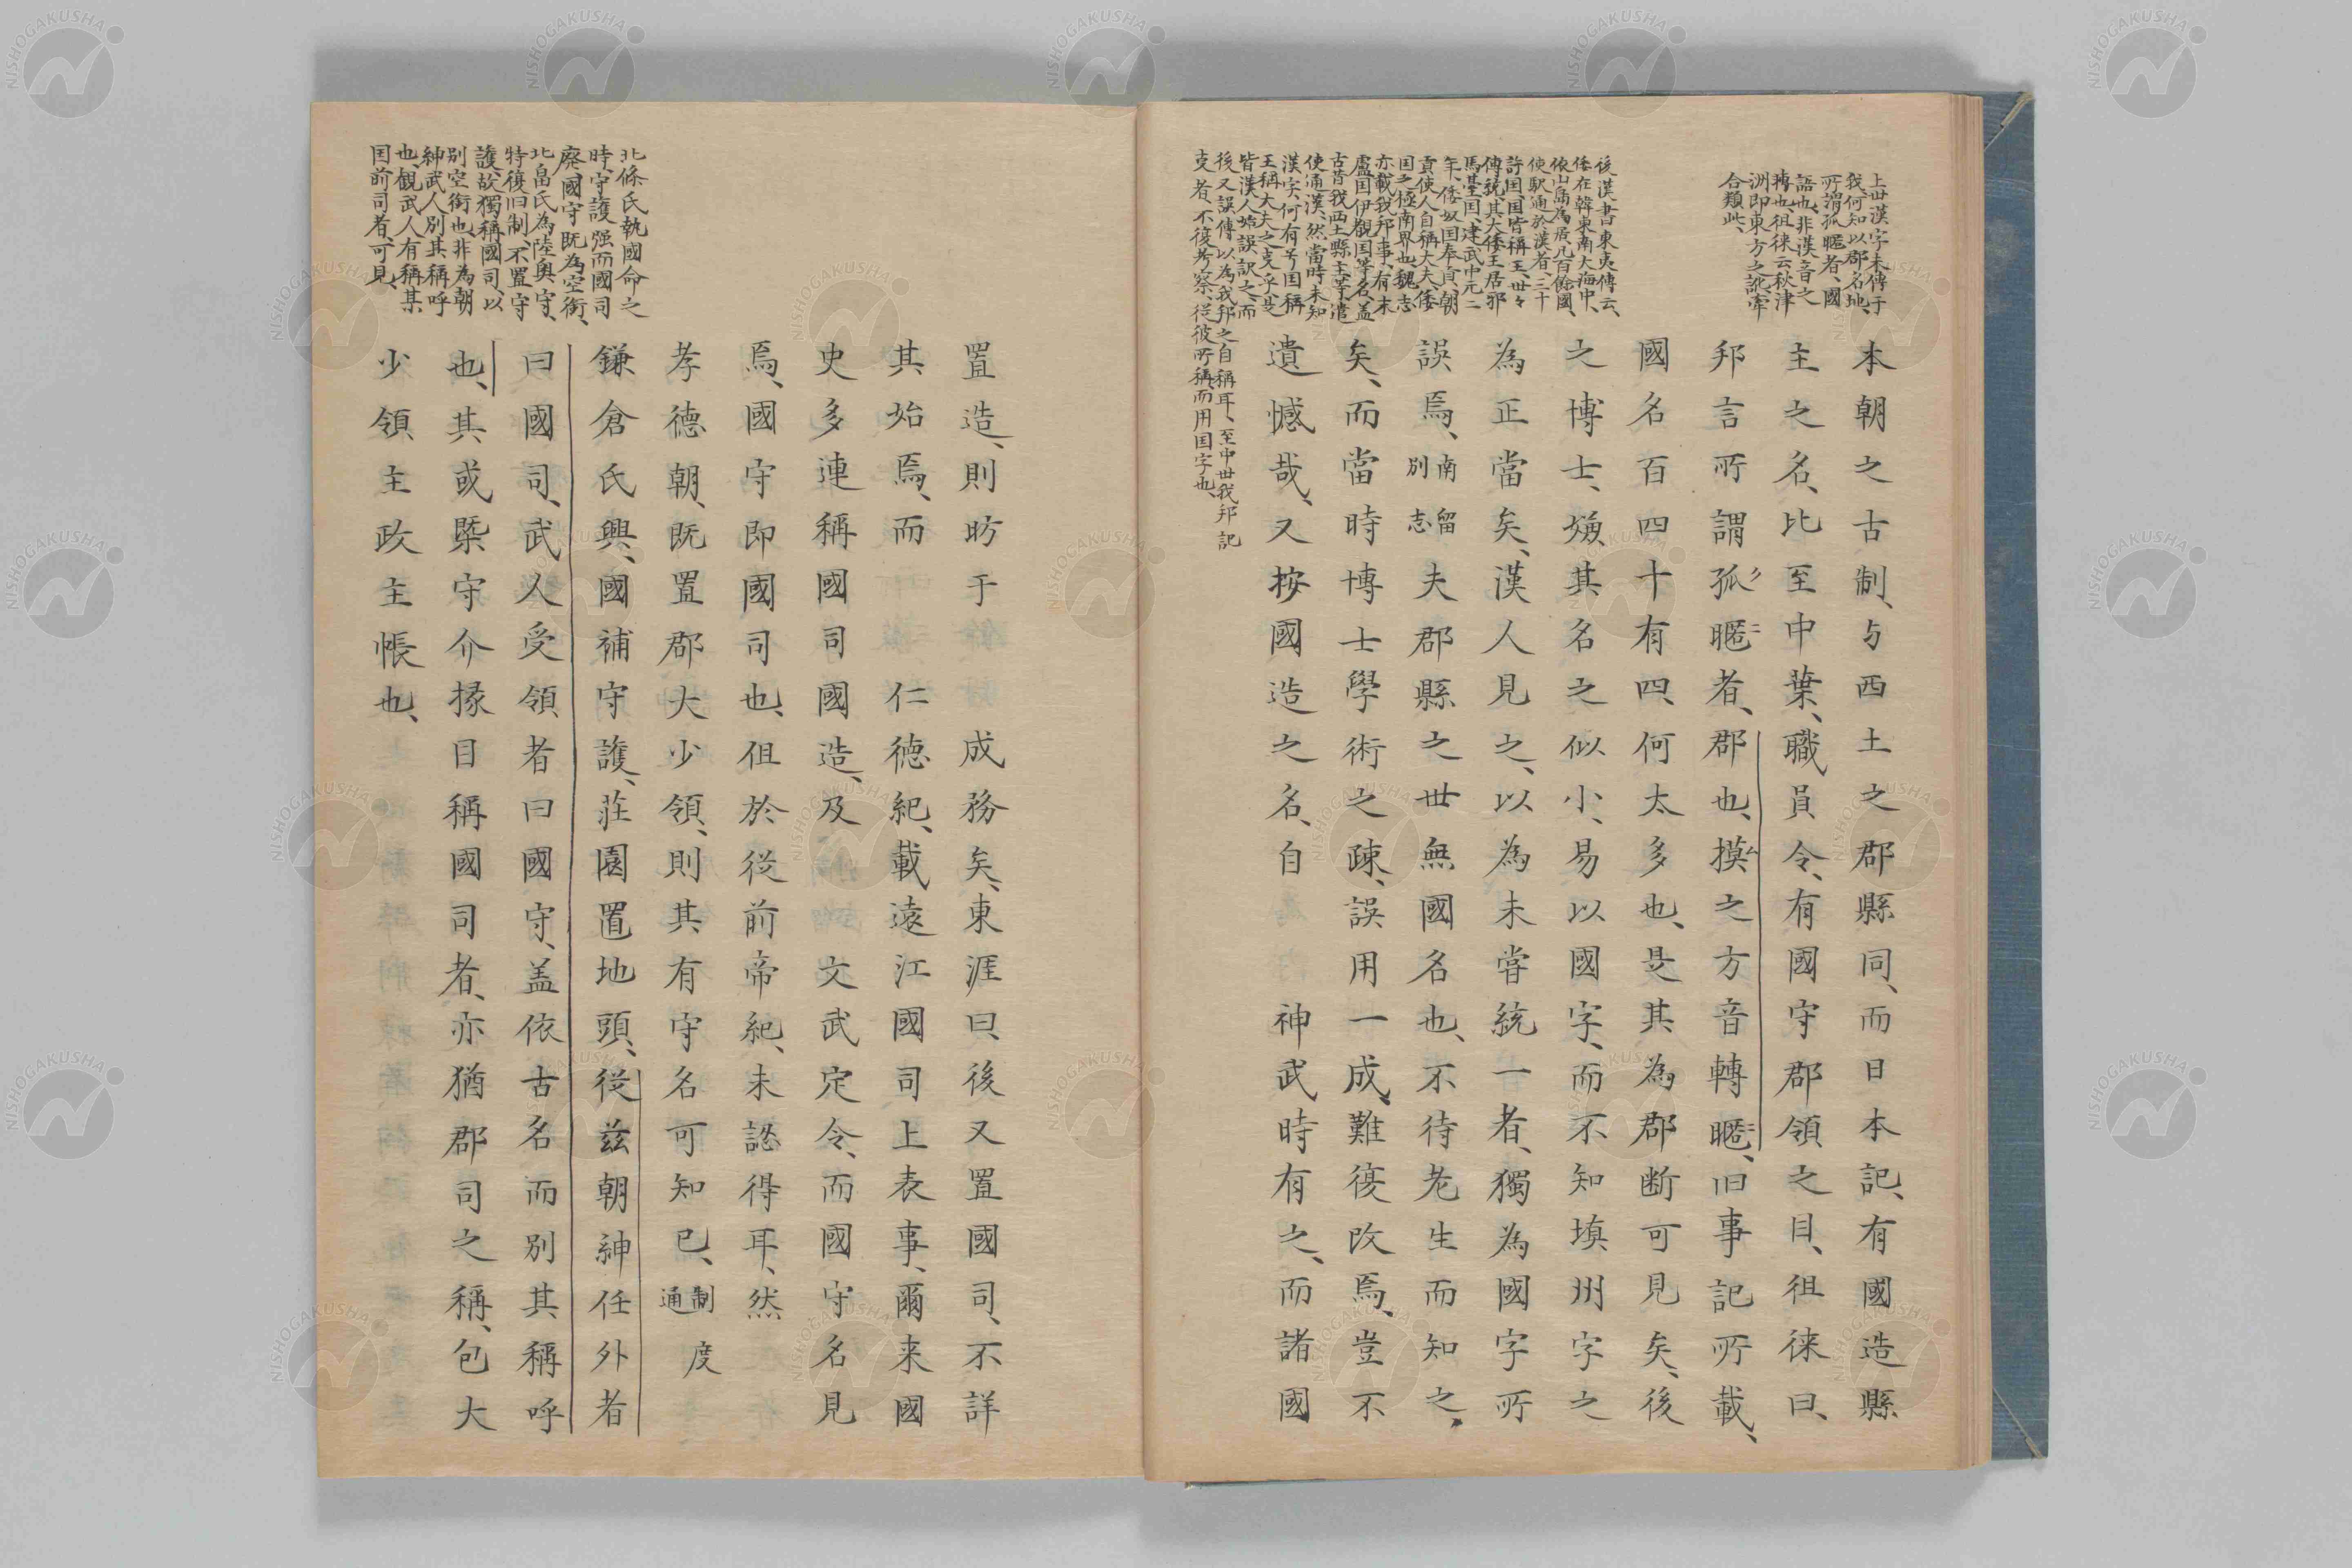 上世漢字未傳于
我何知以郡名地、
所謂孤𣊟者、國
語也、非漢音之
轉也徂徠云秋津
洲即東方之訛牽
合類此、
後漢書東夷傳云、
倭在韓東南大海中、
依山島為居凡百餘國、
使駅通於漢者、三十
許国、国皆稱王、世々
傳統、其大倭王居邪
馬臺国、建武中元二
年、倭奴国奉貢、朝
貢使人自稱大夫、倭
国之極南界也魏志
亦載我邦事、有末
盧国伊覩国等名、盖
古昔我西土縣主等遣
使通漢、然當時未知
漢字、何有号国稱
王稱大夫之支乎、是
皆漢人始誤訳之、而
後又誤傳、以為我邦之自稱耳、至中世我邦記
支者、不復考察、従彼所稱、而用国字也、
本朝之古制、与西土之郡縣同、而日本記、有國造縣
主之名、比至中葉、職員令、有國守郡領之目、徂徠曰、
邦言所謂孤𣊟者、郡也、摸之方音轉𣊟、旧事記所載、
國名百四十有四、何太多也、是其為郡断可見矣、後
之博士、媺其名之似小、易以國字、而不知填州字之
為正當矣、漢人見之、以為未嘗統一者、獨為國字所
誤焉、南留別志夫郡縣之世無國名也、不待老生而知之、
矣、而當時博士學術之疎、誤用一成、難復改焉、豈不
遺憾哉、又按國造之名、自神武時有之、而諸國
置造、則昉于成務矣、東涯曰、後又置國司、不詳
其始焉、而仁德紀、載遠江國司上表事、爾来國
史多連稱國司國造、及文武定令、而國守名見
焉、國守即國司也、但於従前帝紀、未認得耳、然
孝德朝、既置郡大少領、則其有守名可知已、制度通
鎌倉氏興、國補守護、莊園置地頭、従茲朝紳任外者
曰國司、武人受領者曰國守、盖依古名而別其稱呼
也、其或槩守介掾目稱國司者、亦猶郡司之稱、包大
少領主政主帳也、
北條氏執國命之
時、守護强而國司
廃、國守既為空銜、
北畠氏為陸奥守、
特復旧制、不置守
護、故獨稱國司、以
別空銜也、非為朝
紳武人別其稱呼
也、觀武人有稱某
国前司者、可見、